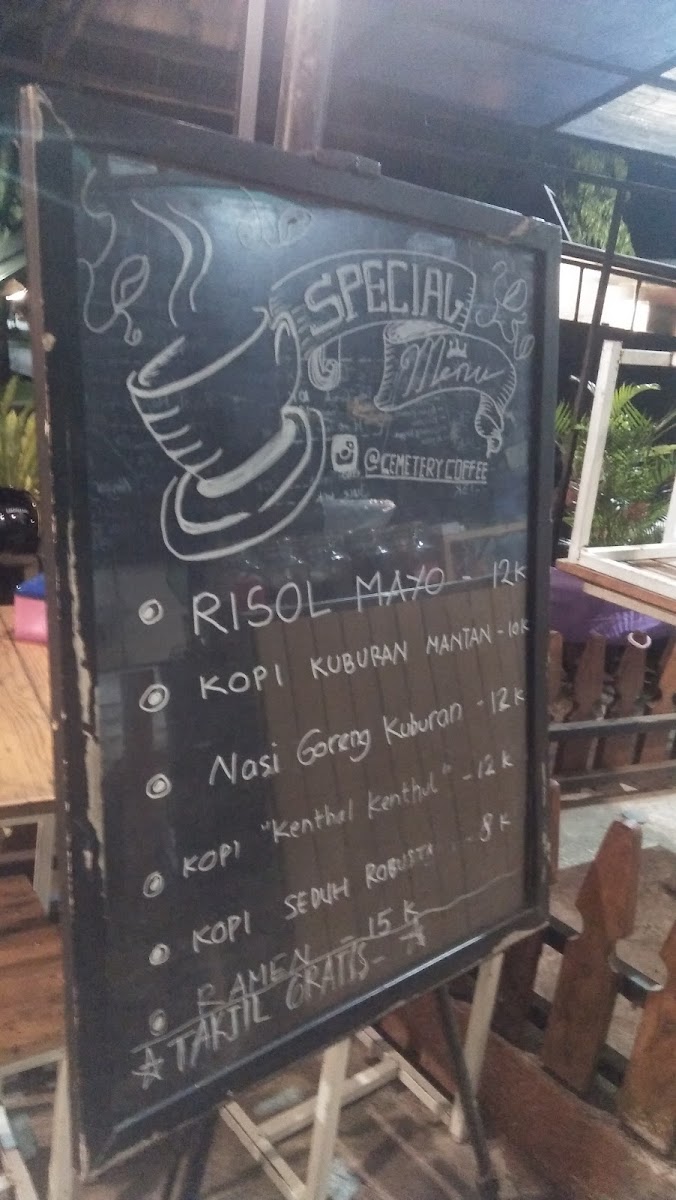 SPECIAL
Menu
@CEMETERYCOFFEE
RISOL MAYO - 12K
KOPI KUBURAN MANTAN - 10K
Nasi Goreng Kuburan - 12K
KOPI "Kenthal Kenthul" - 12K
KOPI SEDUH ROBUSTA - 8K
RAMEN - 15K
TAKJIL GRATIS-